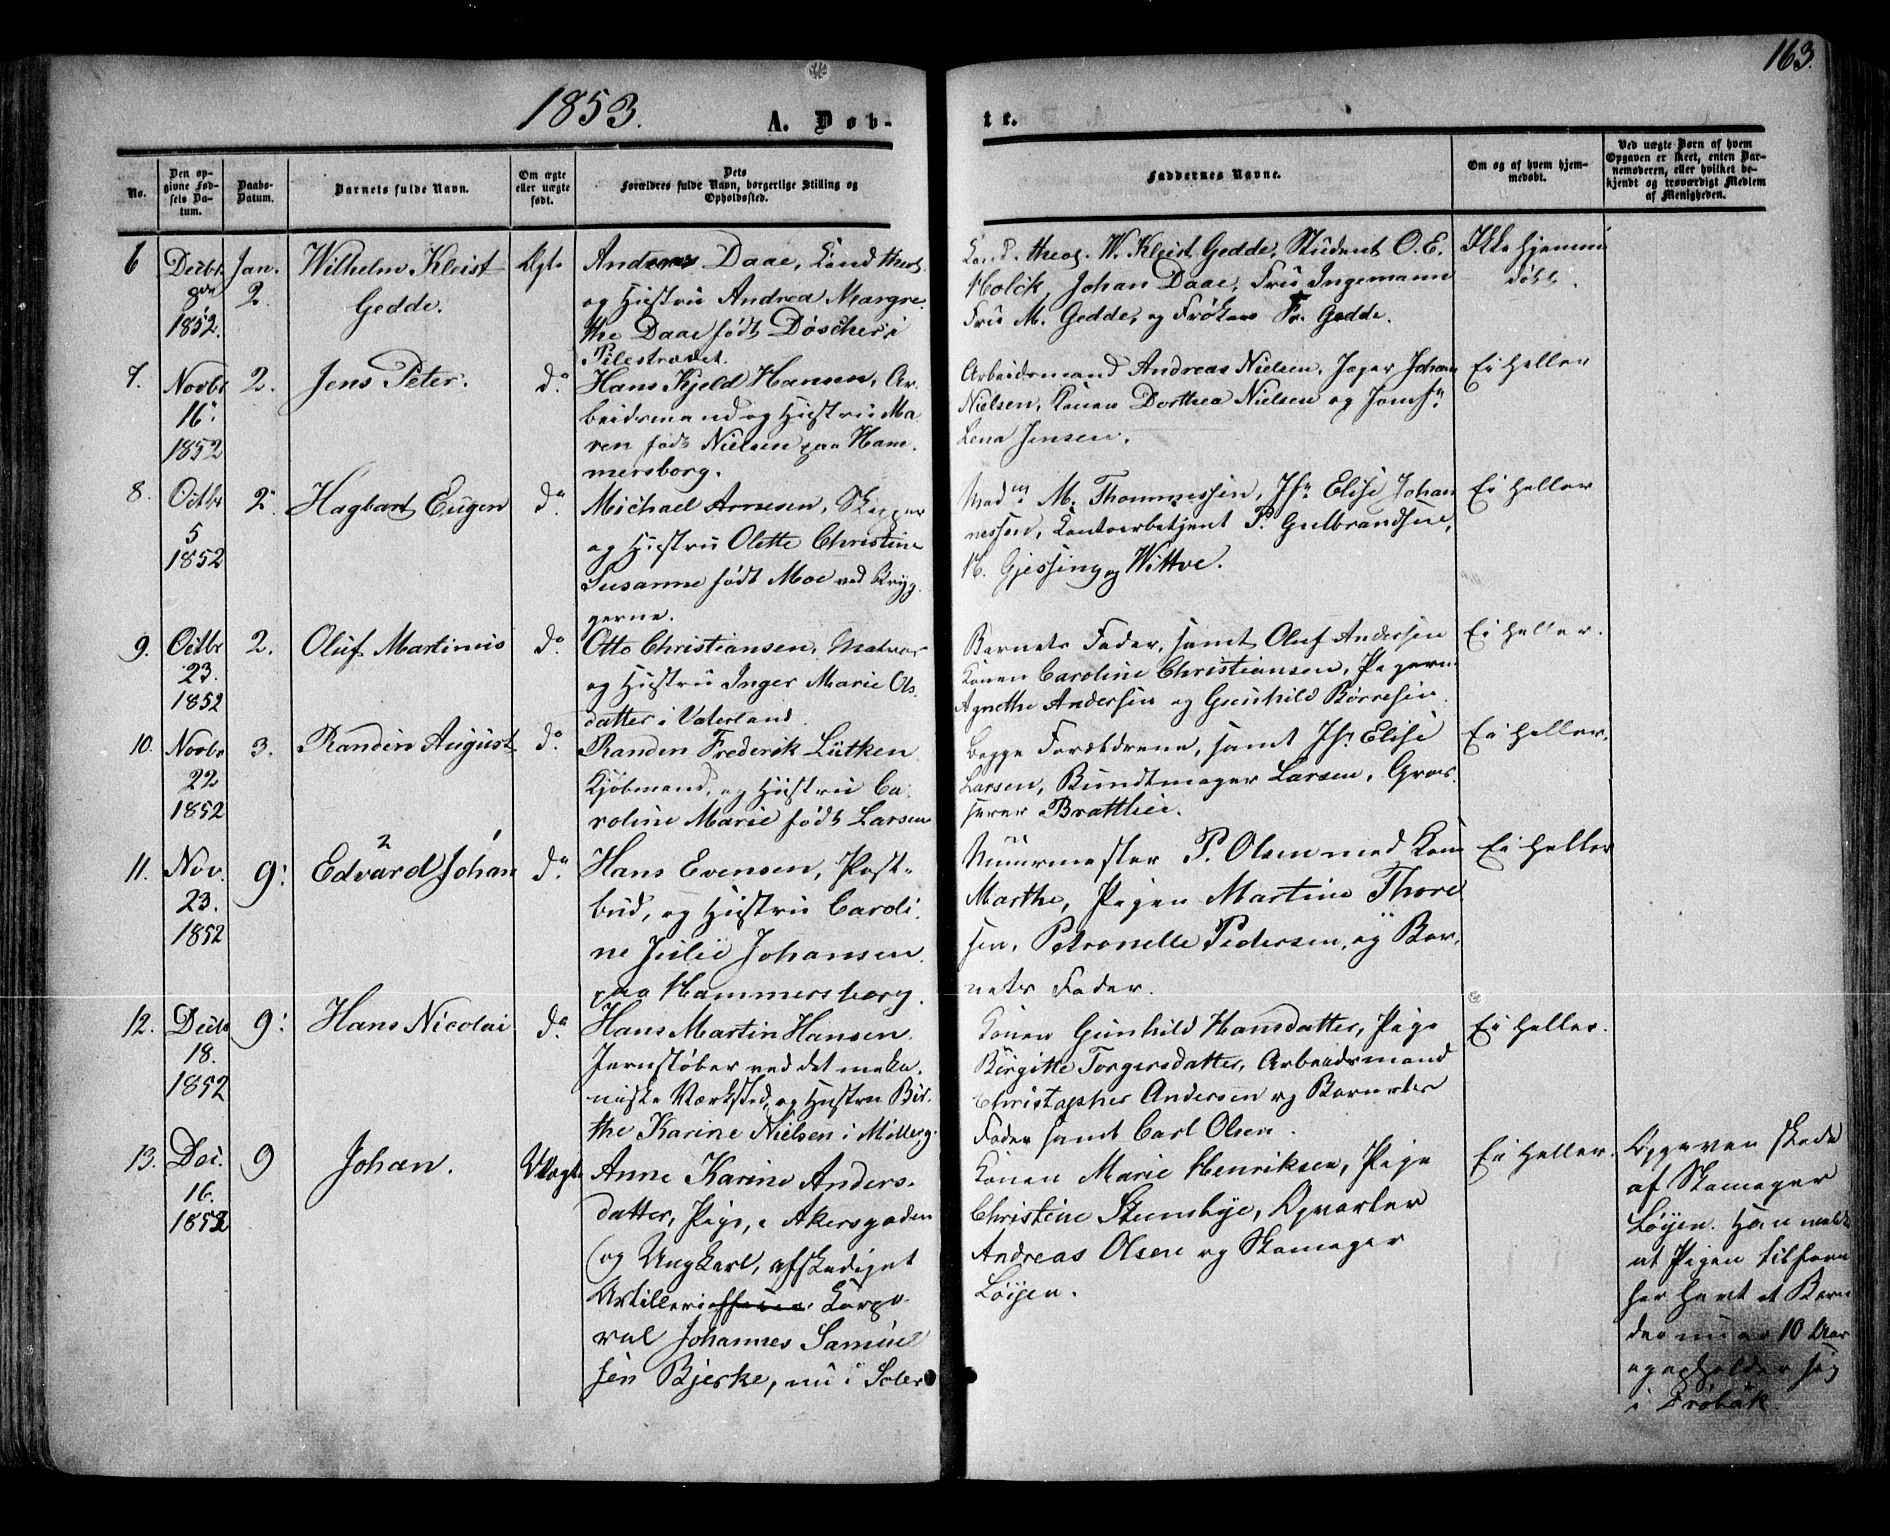 163.
1853.
A. Døb-
te.
No.
Den op-
givne Fød-
sels Da-
tum.
Daabs-
Datum.
Barnets fulde Navn.
Om ægte
eller uægte
født.
Dets
Forældres fulde Navn, borgerlige Stilling og
Opholdssted.
Faddernes Navne.
Om og af hvem hjem-
medøbt.
Ved uægte Børn af hvem
Opgaven er skeet, enten Bar-
nemoderen, eller hvilket be-
kjendt og troværdigt Medlem
af Menigheden.
6
Decbr
8de
1852.
Jan.
2.
Wilhelm Kleist
Gedde.
Ægte
Anders Daae, Cand theol.
og Hustru Andrea Margre
the Daae født Döscher i
Pilestrædet.
Cand. theol. W. Kleist Gedde, Student O. E.
Holck, Johan Daae, Fru Ingemann
Fru M. Gedde, og Frøken Fr. Gedde.
Ikke hjemme
døbt.
7.
Novbr
16.
1852
2.
Jens Peter.
do
Hans Kjeld Hansen, Ar-
beidsmand og Hustru Ma-
ren født Nielsen paa Ham
mersborg.
Arbeidsmand Andreas Nielsen, Jæger Johan
Nielsen, Konen Dorthea Nielsen og Jomfr
Lena Jensen.
Ei heller
8.
Octbr
5
1852
2.
Hagbart Eugen
do
Michael Arnesen, Skipper
og Hustru Olette Christine
Susanne født Moe ved Bryg
gerne.
Mad M. Thommessen, Jfr Elise Johan
nessen, Contorbetjent P. Gulbrandsen,
N. Gjessing og Wittve.
Ei heller
9.
Octbr
23.
1852
2.
Oluf Martinus
do
Otto Christiansen, Matros
og Hustru Inger Marie Ols-
datter i Vaterland.
Barnets Fader, samt Oluf Andersen
Konen Caroline Christiansen, Pigerne
Agnethe Andersen og Gunhild Børresen.
Ei heller.
10.
Novbr
22
1852
3.
Randin August
do
Randen Frederik Lütken
Kjöbmand, og Hustru Ca-
roline Marie født Larsen
Begge Forældrene, samt Jfr Elise
Larsen, Bundtmager Larsen, Gros-
serer Brattlie.
Ei heller.
11.
Nov.
23.
1852
9.
2
Edvard Johan
do
Hans Evensen, Post-
bud, og Hustru Caroli
ne Julie Johansen
paa Hammersborg.
Muurmester P. Olsen med Kone
Marthe, Pigen Martine Thore
sen, Petronelle Pedersen, og Bar-
nets Fader.
Ei heller
12.
Decbr
18.
1852
9.
Hans Nicolai
do
Hans Martin Hansen.
Jernstøber ved det meka-
niske Værksted, og Hustru Bir-
the Karine Nielsen i Møllerg.
Konen Gunhild Hansdatter, Pige
Birgitte Torgersdatter, Arbeidsmand
Christopher Andersen og Barnets
Fader samt Carl Olsen.
Ei heller.
13.
Dec.
16.
1852
9
Johan.
Uægte
Anne Karine Anders-
datter, Pige, i Akersgaden
og Ungkarl, afskediget
Artilleri Korpo
ral Johannes Samuel
sen Bjerke, nu i Soler
Konen Marie Henriksen, Pige
Christine Stensbye,
Andreas Olsen og Skomager
Löijen.
Ei heller.
Opgaven skede
af Skomager
Löijen. Han meldte
at Pigen tilforn
har havt et Barn
der nu er 10 Aar
og opholder sig
i Drøbak.